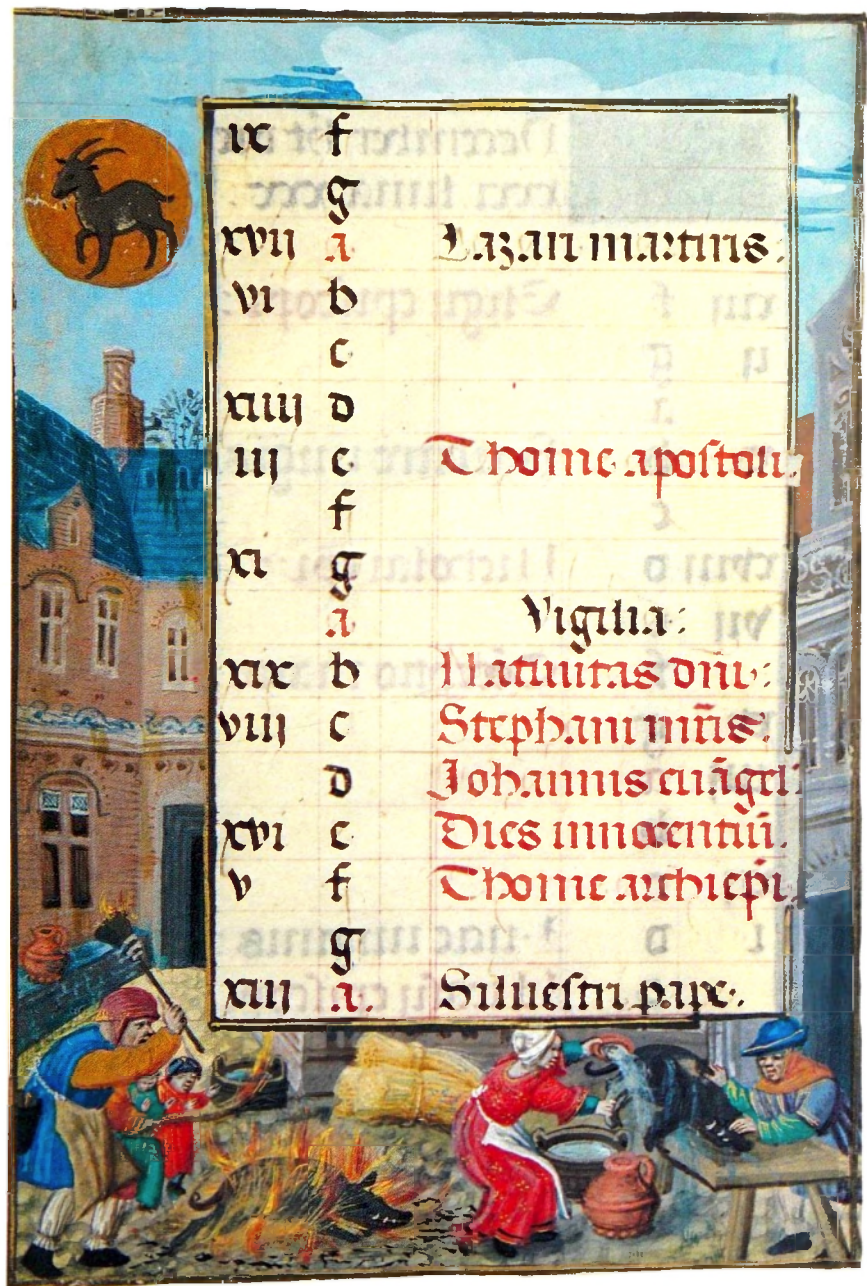 ix f
g
xvii a Lazari martiris.
vi b
c
xiiii d
iii e Thome apostoli.
f
xi g
a Vigilia:
xix b Natiuitas dn̄i:
viii c Stephani mr̄is.
d Johannis euāgel:
xvi e Dies innocentiū.
v f Thome archiep̄i.
g
xiii a. Siluestri pape.